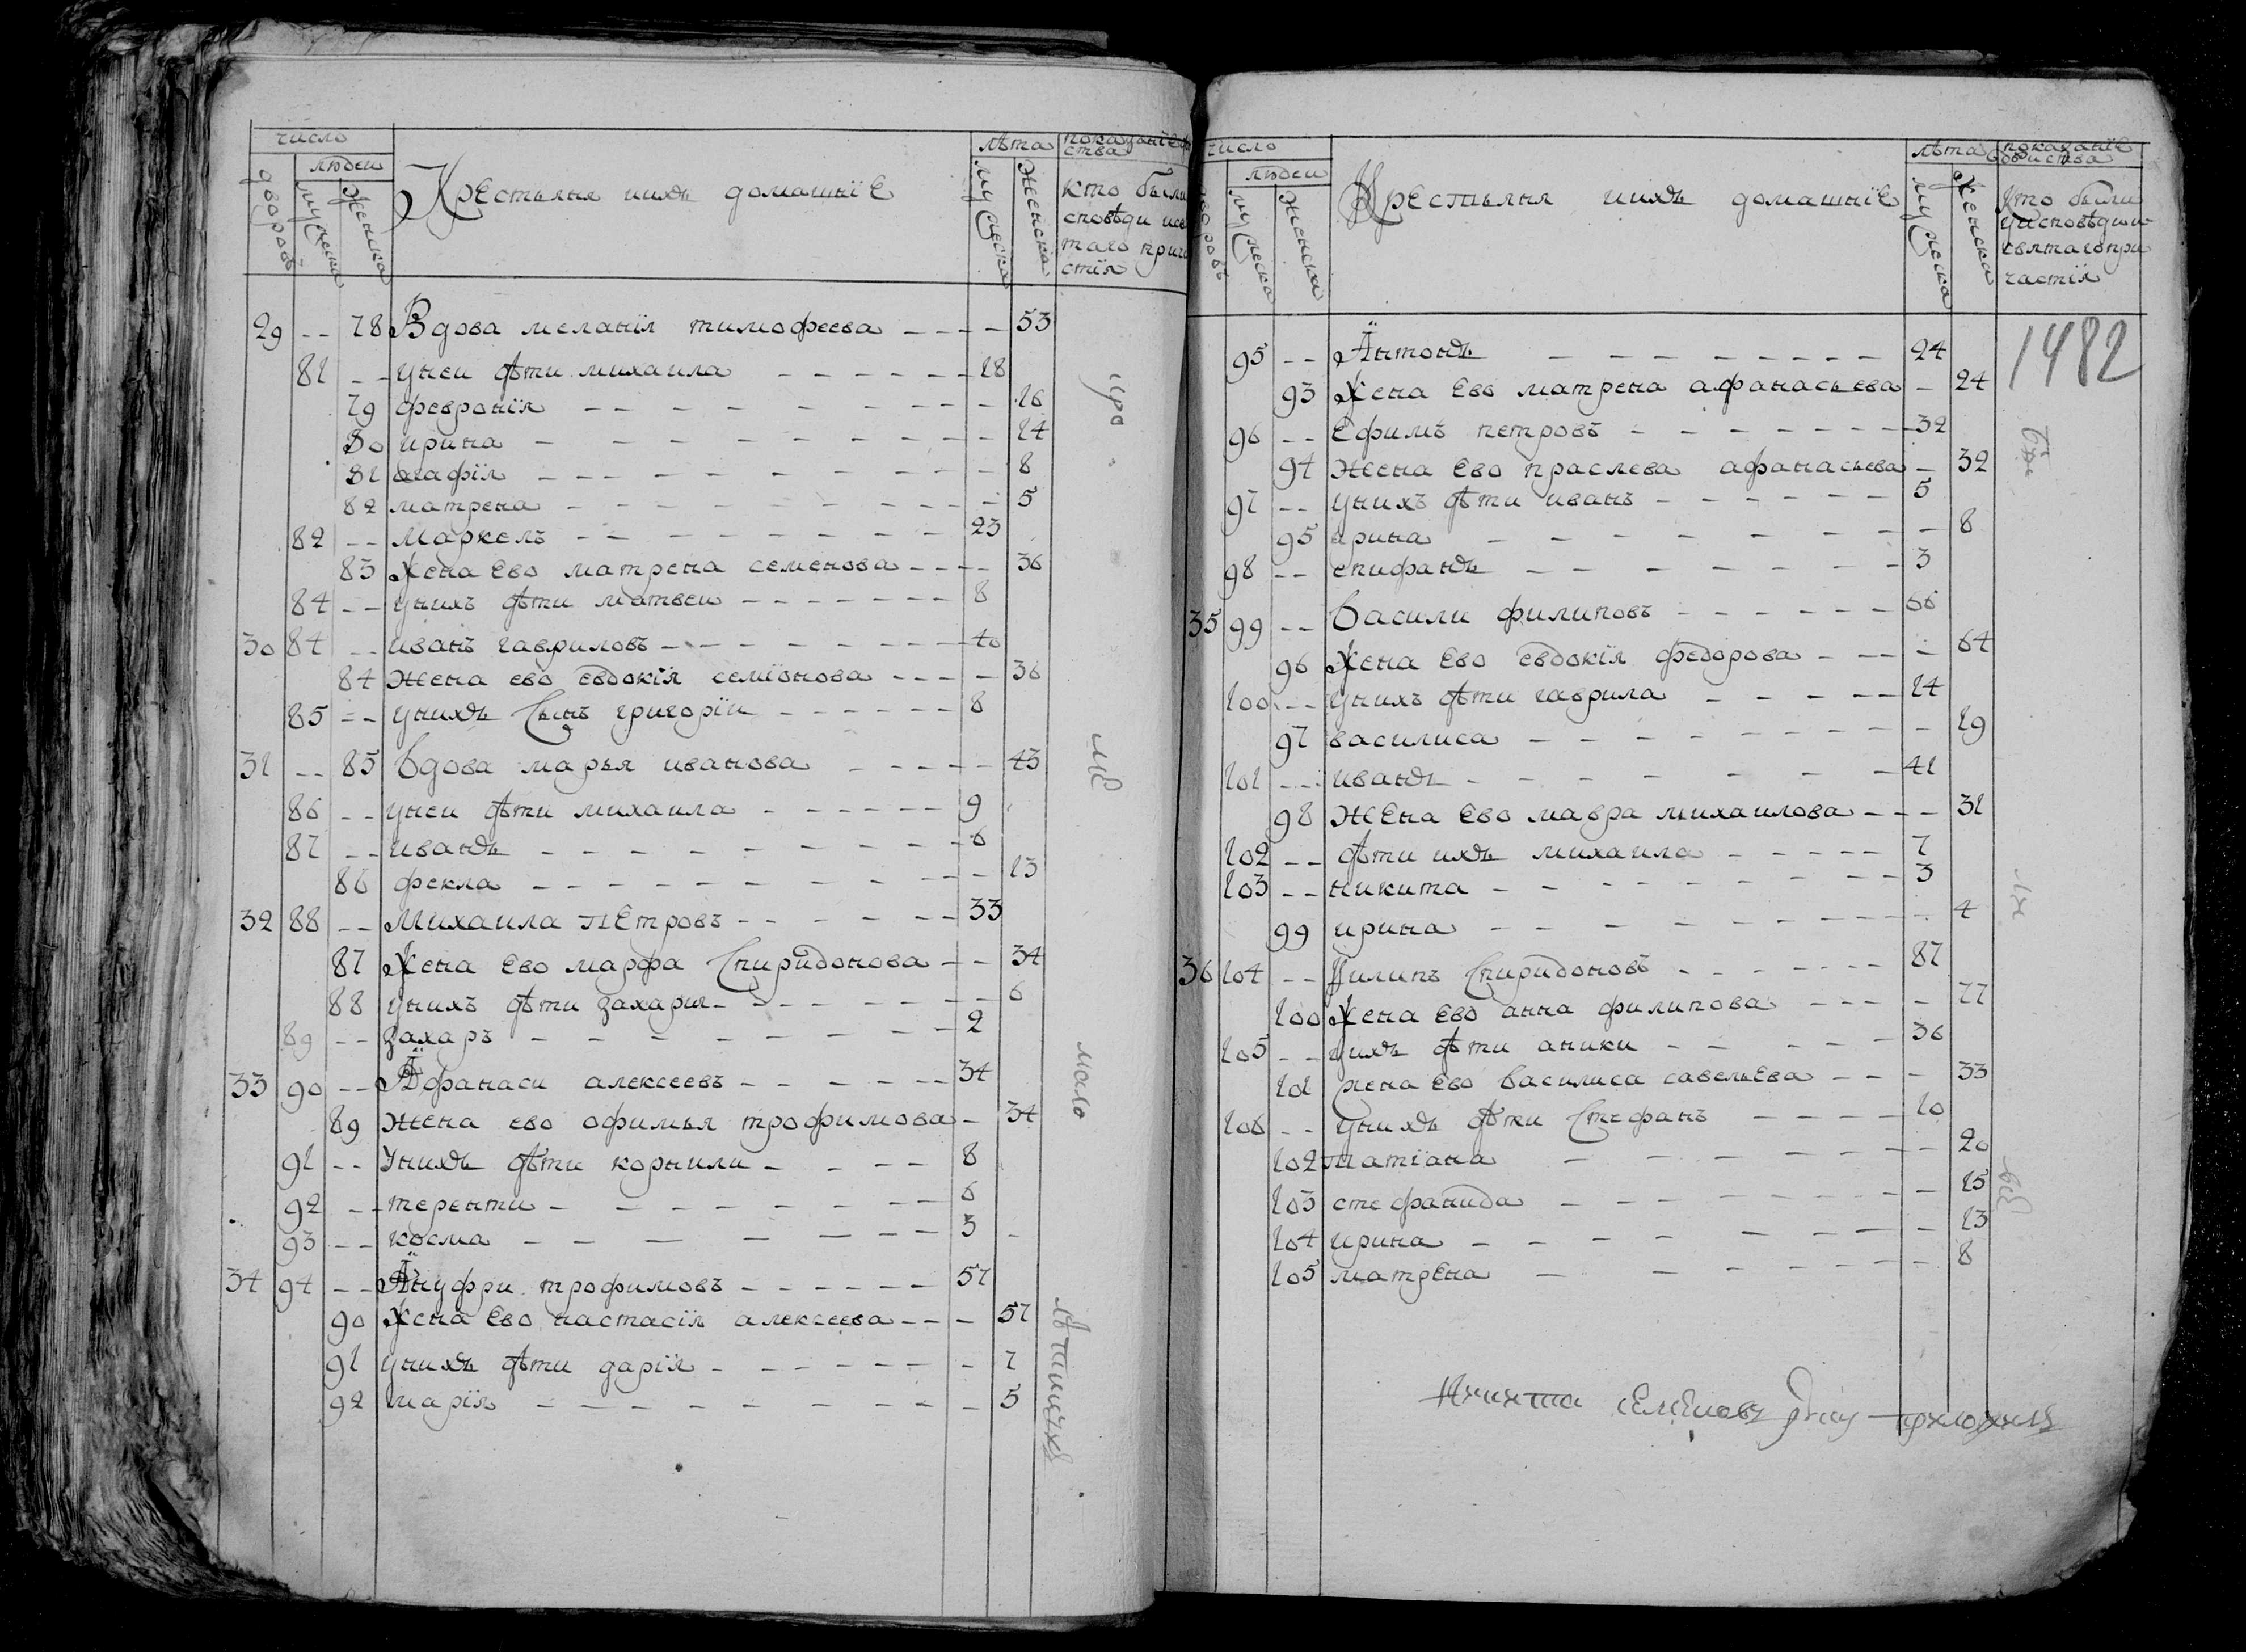 число
людеи
дворовъ
мужеска
женска
Крестьяня ихъ домашнїе
лѣта
мужеска
женска
показанїе
ства
кто были
споведи исв
таго прич
стїя
29 -- 78 Вдова меланїя тимофеева 53
81 -- унеи дѣти михаила 18
79 февронїя 16
80 ирина 14
81 агафїя 8
82 матрена 5
82 -- Маркелъ 23
83 Жена Ево матрена семенова 36
84 -- унихъ дѣти матвеи 8
30 84 -- иванъ гавриловъ 40
84 Жена ево евдокїя семїонова 36
85 -- унихъ Сынъ григорїи 8
31 -- 85 Вдова марья иванова 43
86 -- унеи дѣти михаила 9
87 -- иванъ 6
86 фекла 13
32 88 -- Михаила пЕтровъ 33
87 Жена Ево марфа Спиридонова 34
88 унихъ дѣти захария 6
89 -- захаръ 2
33 90 -- Афанаси алексеевъ 34
89 Жена ево офимья трофимова 34
91 -- Унихъ дѣти корнили 8
92 -- теренти 6
93 -- косма 3
34 94 -- Ануфри трофимовъ 57
90 Жена Ево настасїя алексеева 57
91 унихъ дѣти дарїя 7
92 марїя 5
мало
число
людеи
дворовъ
мужеска
женска
Крестьяня ихъ домашнїе
лѣта
мужеска
женска
показанїе
кто были
уисповѣди и
святагопри
частїя
1482
95 -- Антонъ 24
93 Жена Ево матрена афанасьева 24
96 -- Ефимъ петровъ 32
94 Жена Ево праскева афанасьева 32
97 -- унихъ дѣти иванъ 5
95 арина 8
98 -- епифанъ 3
35 99 -- Василии филиповъ 66
96 Жена Ево евдокїя федорова 64
100 -- унихъ дѣти гаврила 14
97 василиса 19
101 -- иванъ 41
98 ЖЕна Ево мавра михаилова 31
102 -- дѣти ихъ михаила 7
103 -- никита 3
99 ирина 4
36 104 -- Филипъ Спиридоновъ 87
100 Жена Ево анна филипова 77
105 -- уихъ дѣти аники 36
101 жена Ево василиса савельЕва 33
106 -- унихъ дѣти Стефанъ 10
102 татїана 20
103 стефанида 15
104 ирина 13
105 матрЕна 8